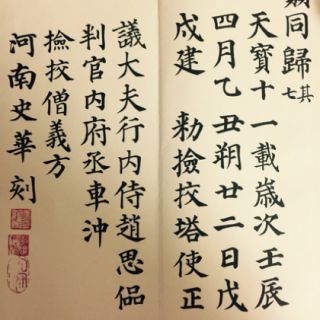 同歸 其七
天寶十一載歲次壬辰
四月乙丑朔廿二日戊
戌建 勑撿挍塔使正
議大夫行內侍趙思偘
判官內府丞車沖
撿挍僧義方
河南史華刻